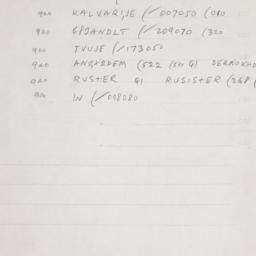 900 KALVARIJE (/007050 (080
900 GBJANDLT (/209070 (320
900 TVUJE (/173050
900 ANQXEDEM (522 (501 GI DERMOKHD
900 RUSTER GI RUSISTER (268 (
900 IN (/008080